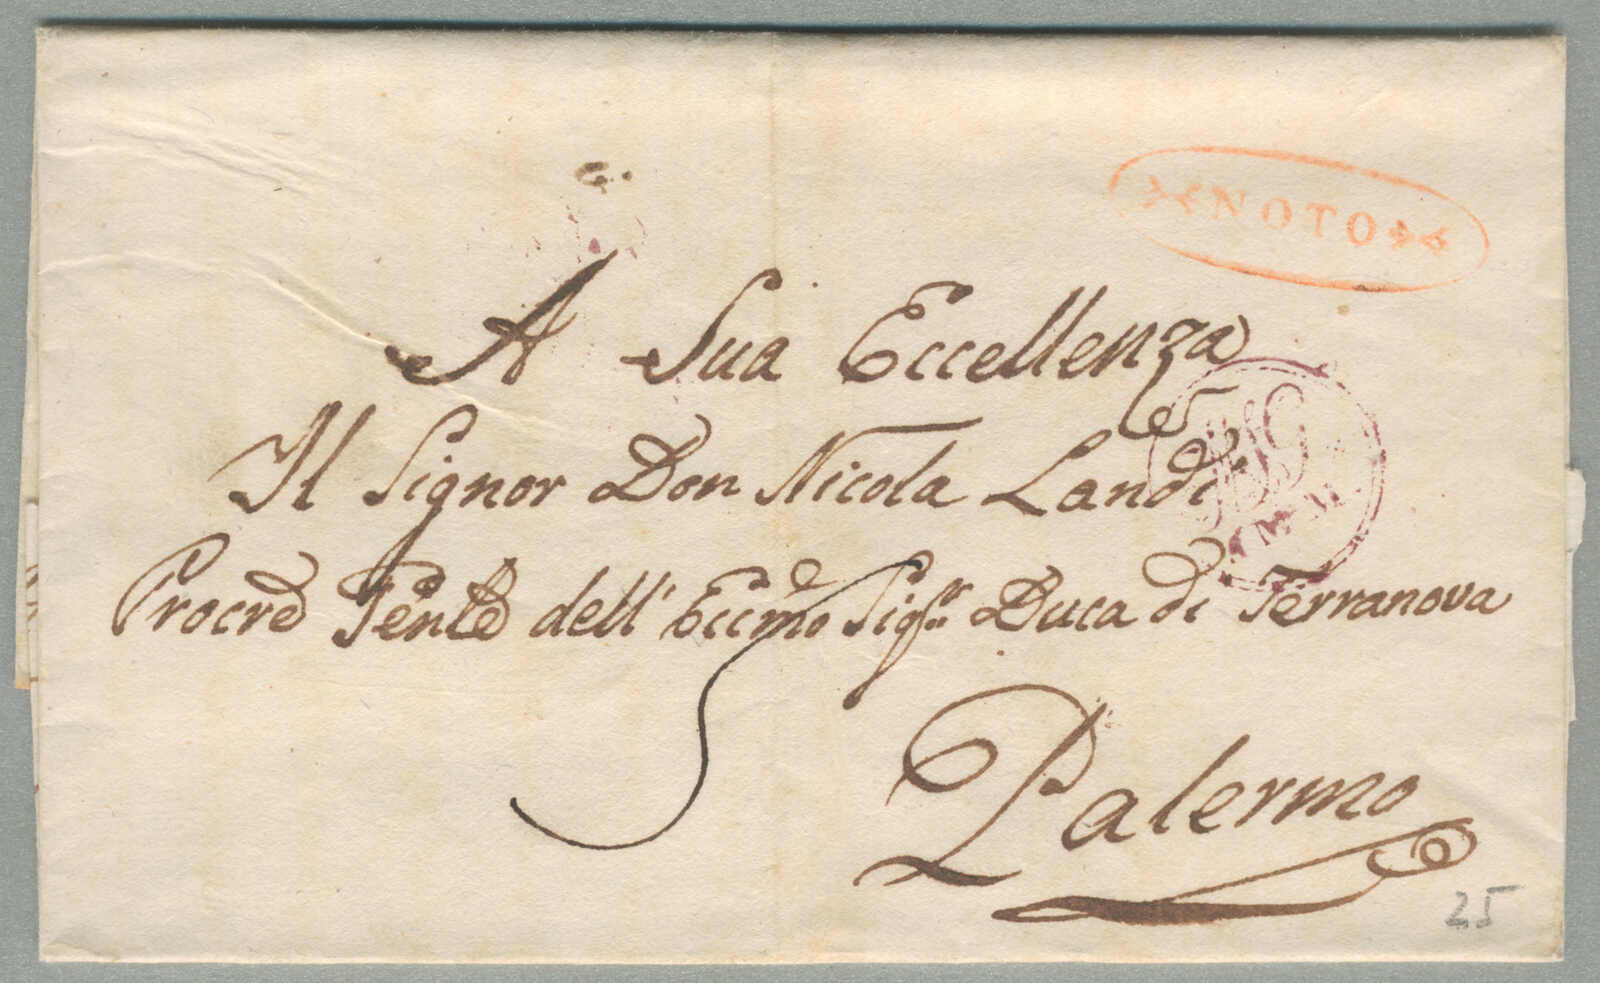 NOTO
A Sua Eccellenza
Il Signor Don Nicola Landi
Procre Gente dell' Eccmo Sigr. Duca di Terranova
Palermo
25